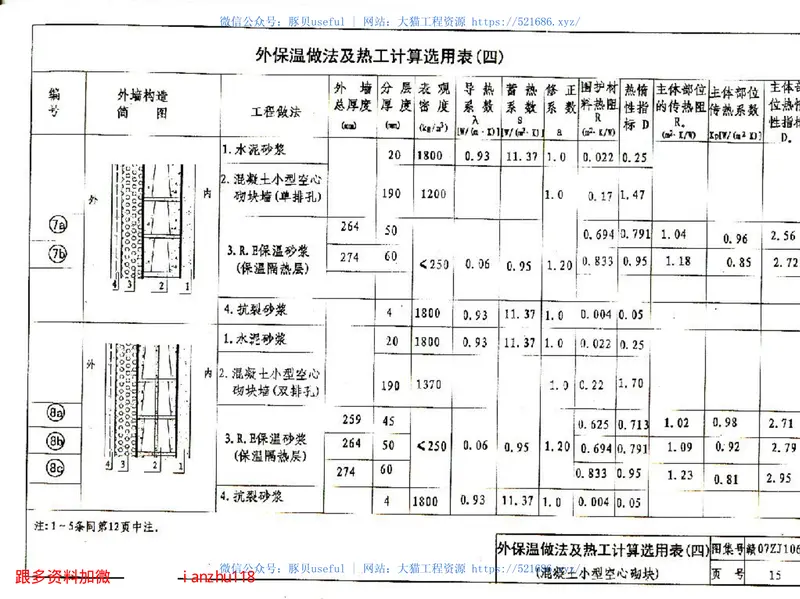 微信公众号: 豚贝useful | 网站: 大猫工程资源 https://521686.xyz/
外保温做法及热工计算选用表(四)
编号 外墙构造简图 工程做法 外墙总厚度(mm) 分层厚度(mm) 表观密度(kg/m³) 导热系数λ[W/(m·K)] 蓄热系数S[W/(m²·K)] 修正系数a 围护材料热阻R(m²·K/W) 热惰性指标D 主体部位的传热阻R。(m²·K/W) 主体部位传热系数Kp[W/(m²K)] 主体部位热惰性指标D。
1.水泥砂浆 20 1800 0.93 11.37 1.0 0.022 0.25
2.混凝土小型空心砌块墙(单排孔) 190 1200 1.0 0.17 1.47
外 内
7a 264 50 0.694 0.791 1.04 0.96 2.56
7b 3.R.E保温砂浆(保温隔热层) 274 60 ≤250 0.06 0.95 1.20 0.833 0.95 1.18 0.85 2.72
4 3 2 1
4.抗裂砂浆 4 1800 0.93 11.37 1.0 0.004 0.05
1.水泥砂浆 20 1800 0.93 11.37 1.0 0.022 0.25
外 内
2.混凝土小型空心砌块墙(双排孔) 190 1370 1.0 0.22 1.70
8a 259 45 0.625 0.713 1.02 0.98 2.71
8b 3.R.E保温砂浆(保温隔热层) 264 50 ≤250 0.06 0.95 1.20 0.694 0.791 1.09 0.92 2.79
8c 274 60 0.833 0.95 1.23 0.81 2.95
4 3 2 1
4.抗裂砂浆 4 1800 0.93 11.37 1.0 0.004 0.05
注:1~5条同第12页中注。
外保温做法及热工计算选用表(四) 图集号 赣07ZJ106
(混凝土小型空心砌块) 页号 15
微信公众号: 豚贝useful | 网站: 大猫工程资源 https://521686.xyz/
跟多资料加微 lianzhu118